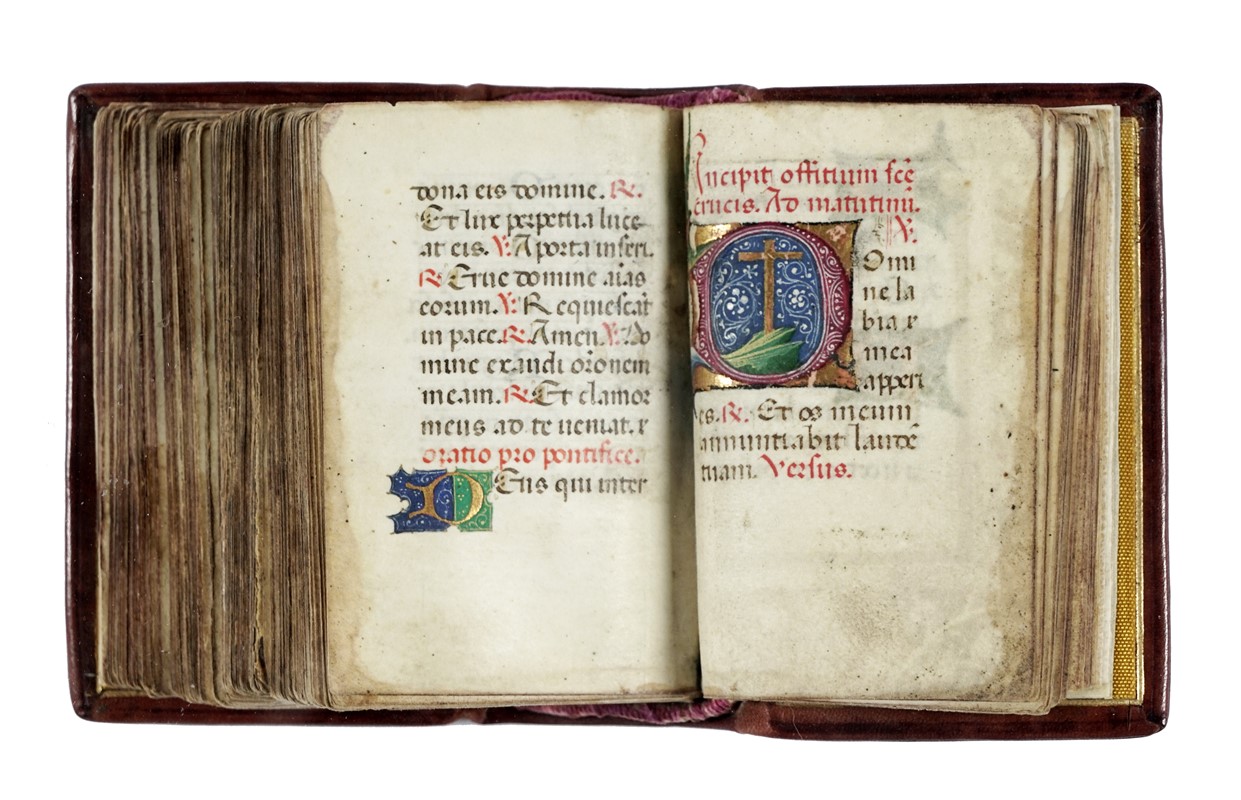 dona eis domine. R.
Et lux perpetua luce
at eis. V. A porta inferi.
R. Erue domine aīas
eorum. V. Requiescat
in pace. R. Amen. V. Do
mine exaudi orōnem
meam. R. Et clamor
meus ad te veniat. r
oratio pro pontifice.
Deus qui inter
Incipit offitium scē
crucis. Ad matutinū.
V.
Domi
ne la
bia r
mea
apperi
es. R. Et os meum
annuntiabit laudē
tuam. Versus.